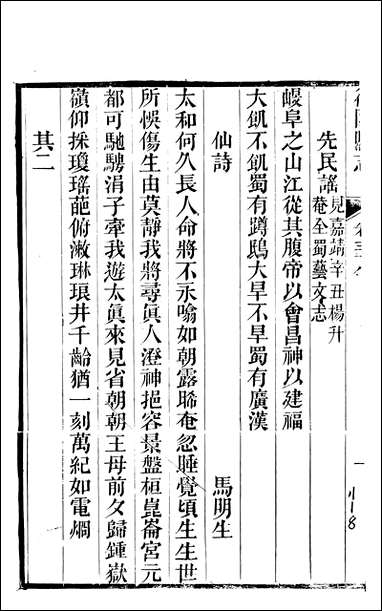 先民謠見嘉靖辛丑楊升
菴全蜀藝文志
嶓阜之山江從其腹帝以會昌神以建福
大飢不飢蜀有蹲鴟大旱不旱蜀有廣漢
仙詩 馬明生
太和何久長人命將不永噏如朝露晞奄忽睡覺頃生生世
所悞傷生由莫靜我將尋眞人澄神挹容景盤桓崑崙宮元
都可馳騁涓子牽我遊太眞來見省朝朝王母前夕歸鍾嶽
嶺仰採瓊瑤葩俯漱琳琅井千齡猶一刻萬紀如電烱
其二
一
118